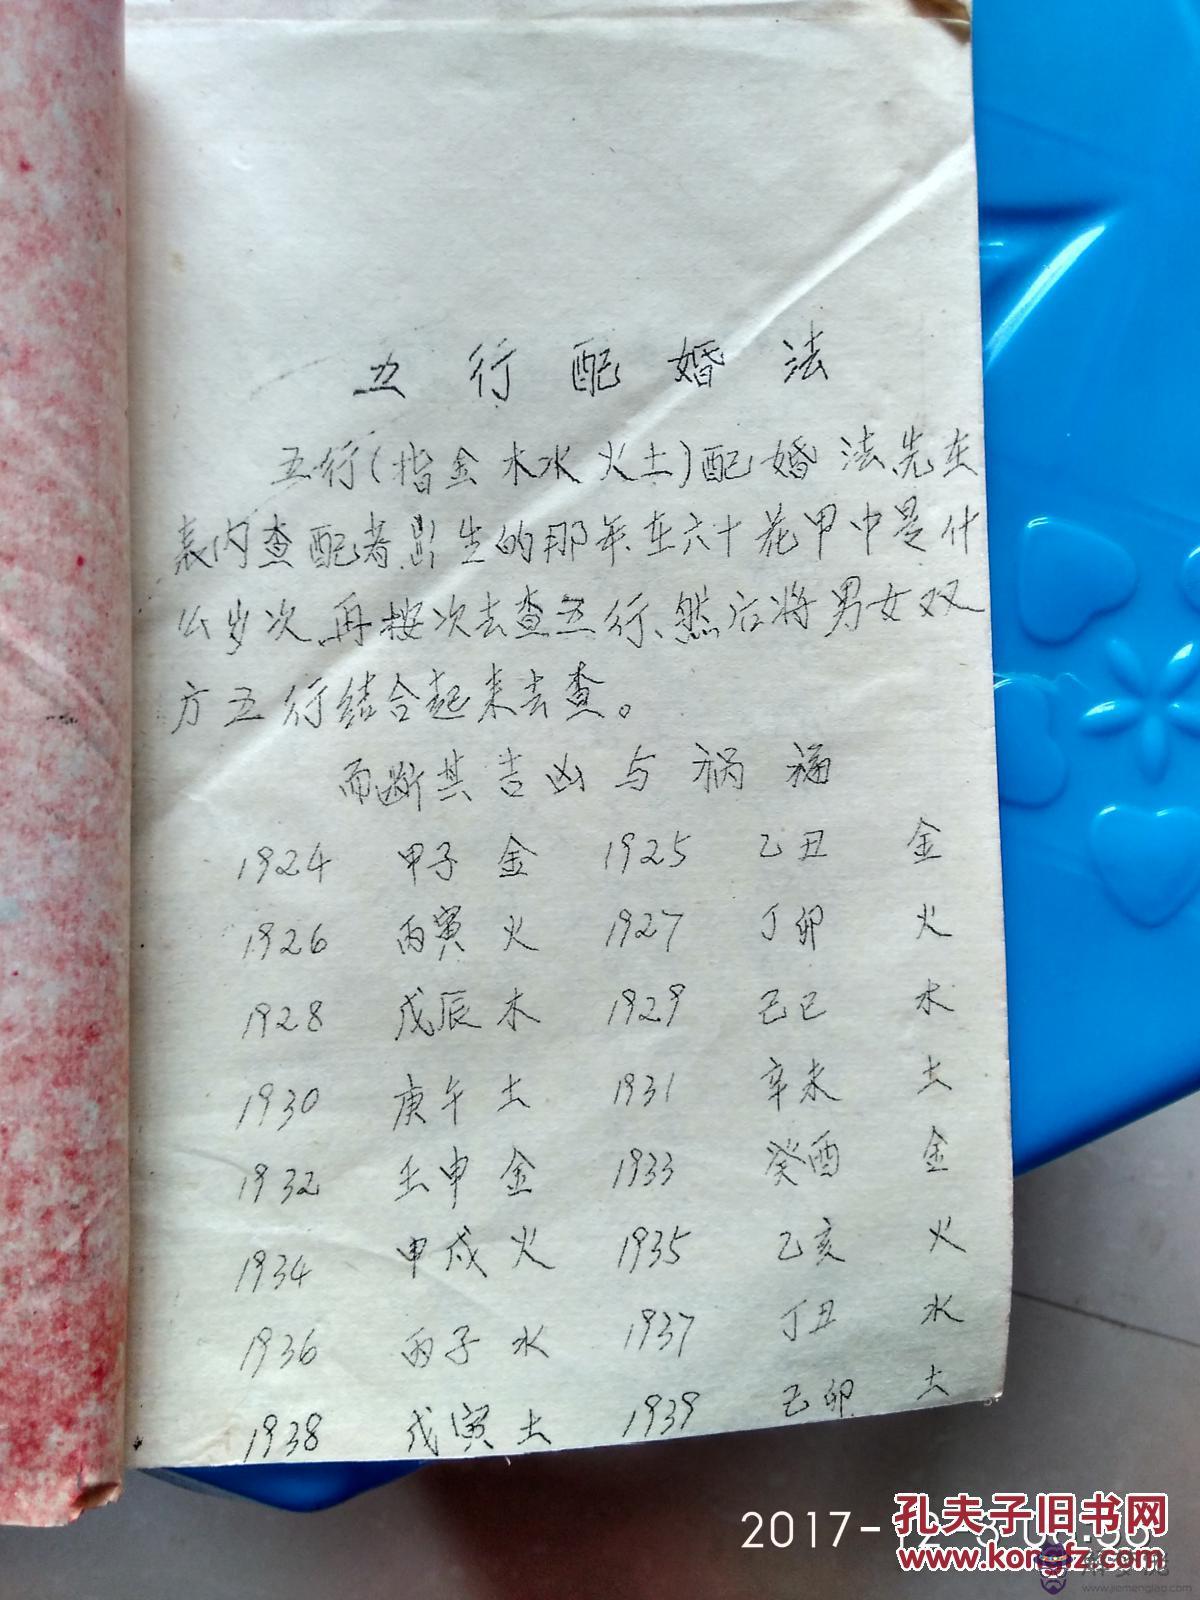 五行配婚法
五行(指金木水火土)配婚法先在
表内查配者出生的那年在六十花甲中是什
么岁次、再按次去查五行、然后将男女双
方五行结合起来去查。
而断其吉凶与祸福
1924 甲子 金 1925 乙丑 金
1926 丙寅 火 1927 丁卯 火
1928 戊辰 木 1929 己巳 木
1930 庚午 土 1931 辛未 土
1932 壬申 金 1933 癸酉 金
1934 甲戌 火 1935 乙亥 火
1936 丙子 水 1937 丁丑 水
1938 戊寅 土 1939 己卯 土
2017-
孔夫子旧书网
www.kongfz.com
www.jiemenglao.com